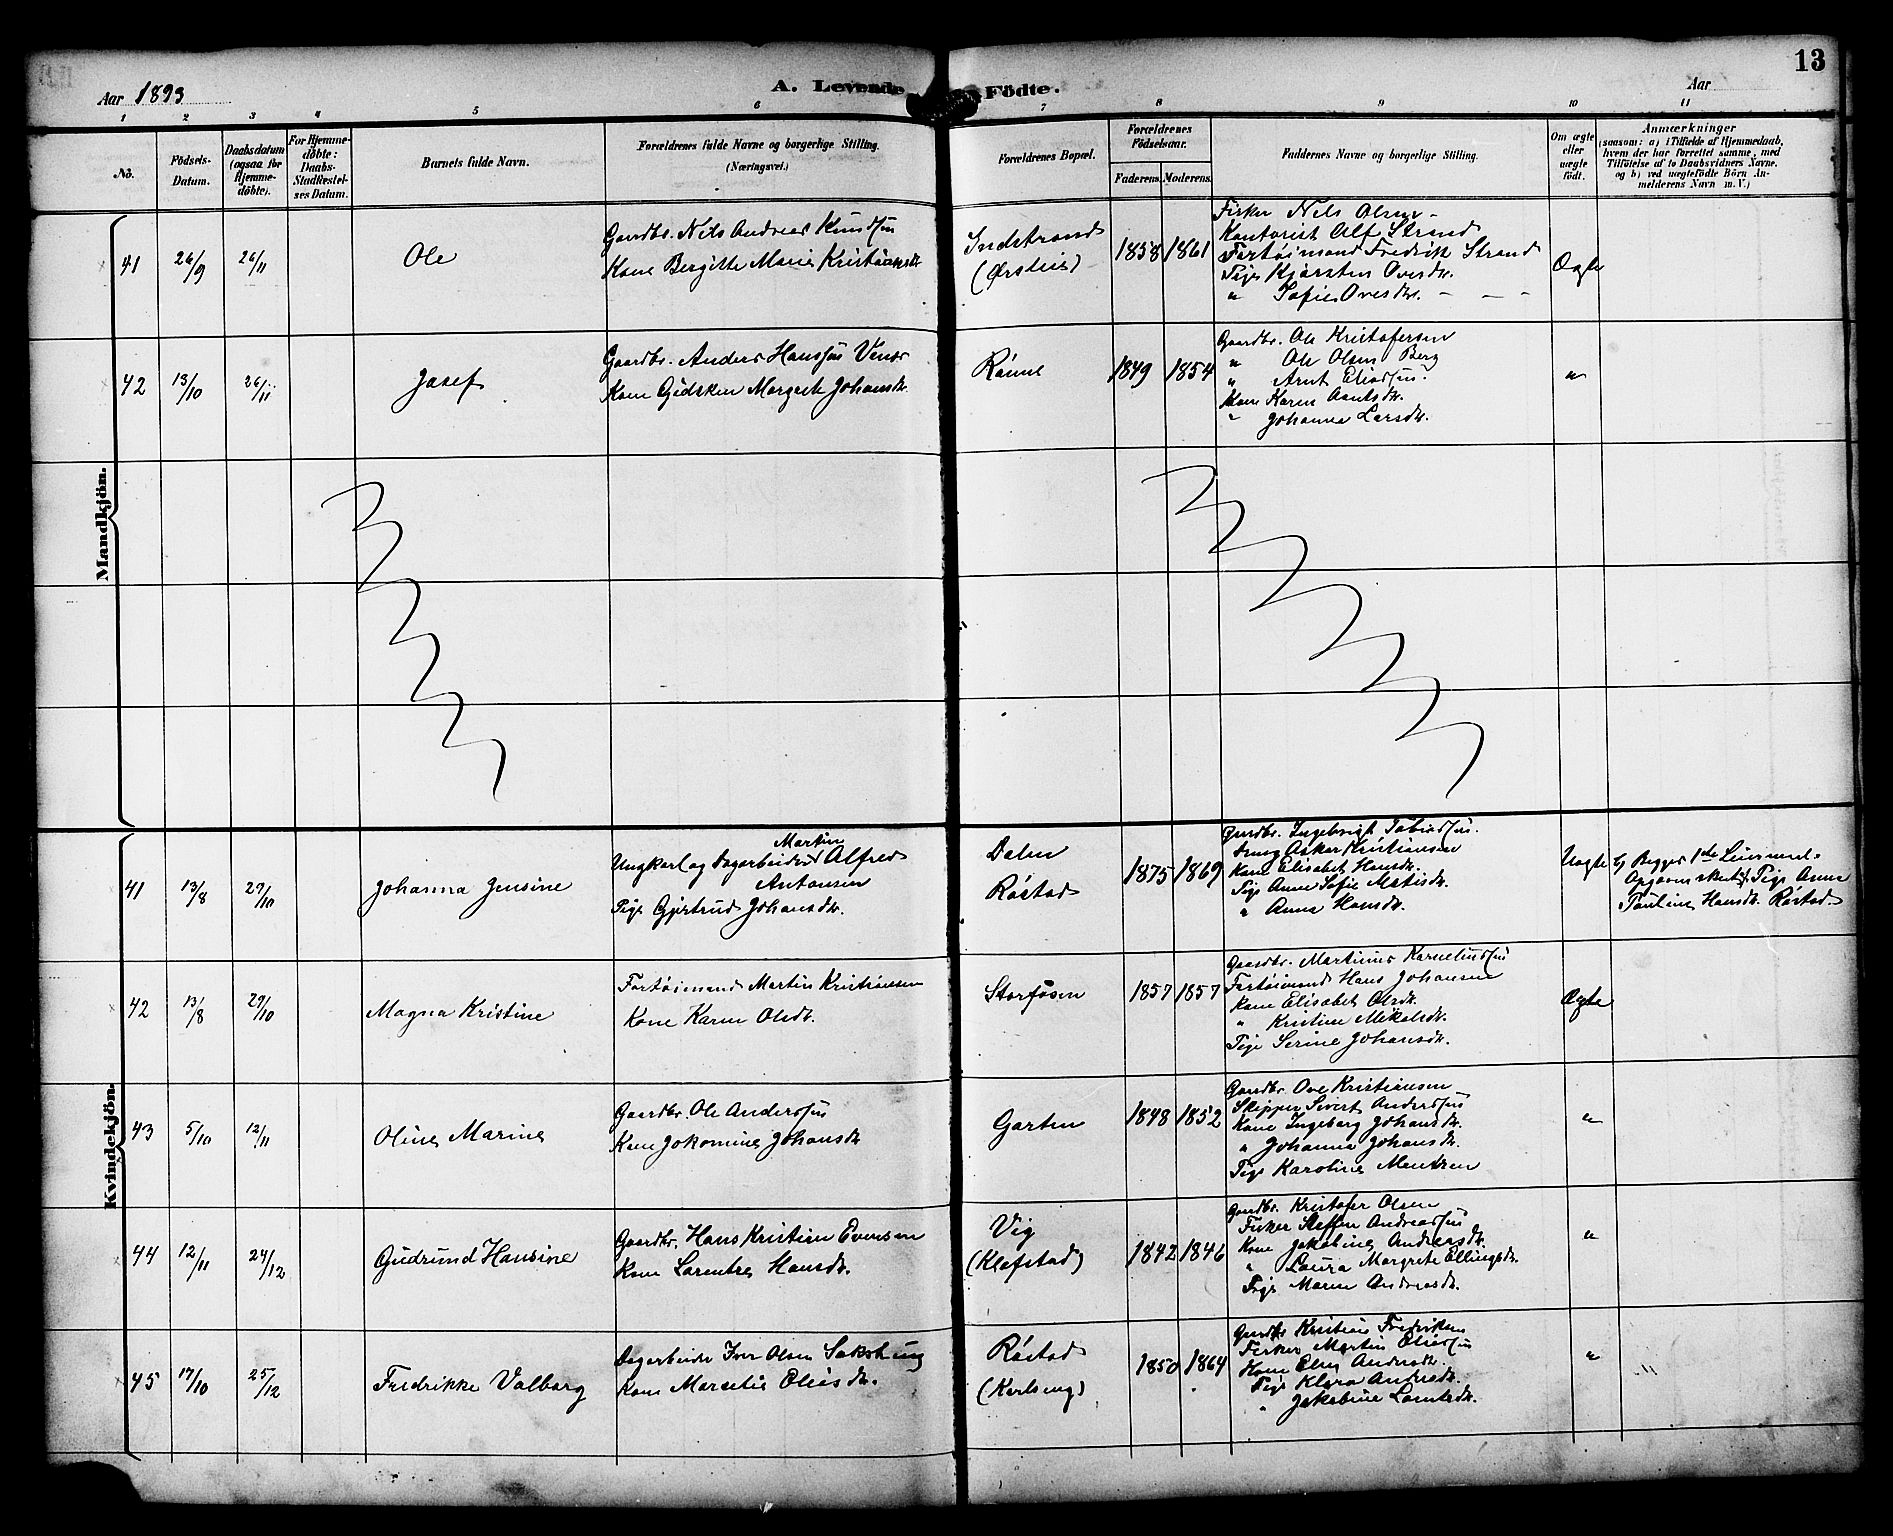 13
Aar 1893
A. Levende Födte.
Aar
1 2 3 4 5 6 7 8 9 10 11
No.
Födsels-
Datum.
Daabsdatum
(ogsaa for
Hjemme-
döbte).
For Hjemme-
döbte:
Daabs-
Stadfæstel-
ses Datum.
Barnets fulde Navn.
Forældrenes fulde Navne og borgerlige Stilling.
(Næringsvei.)
Forældrenes Bopæl.
Forældrenes
Födselsaar.
Faderens.
Moderens.
Faddernes Navne og borgerlige Stilling.
Om ægte
eller
uægte
födt.
Anmærkninger
(saasom: a) i Tilfælde af Hjemmedaab,
hvem der har forrettet samme, med
Tilföielse af to Daabsvidners Navne.
og b) ved uægtefödte Börn An-
melderens Navn m. V.)
Mandkjön.
41
26/9
26/11
Ole
Gaardbr. Nils Andreas Knudsen
Kone Bergitte Marie Kristiansdr.
Indstrand
(Ørslies)
1858
1861
Fisker Nils Olsen
Kontorist Alf Strand
Fartøimand Fredrik Strand
Pige Kjersten Ovesdr.
" Sofie Ovesdr. - - -
Ægte
42
13/10
26/11
Josef
Gaardbr. Anders Hanssen
Kone Gidsken Margrete Johansdr.
Rønne
1849
1854
Gaardbr. Ole Kristofersen
" Ole Olsen Berg
" Arnt Eliassen.
Kone Karen Arntsdr.
" Johanna Larsdr.
"
Kvindekjön.
41
13/8
29/10
Johanna Jensine
Martin
Ungkarl og Dagarbeider Alfred
Antonsen
Pige Gjertrud Johansdr.
Dalen
Røstad
1875
1869
Gaardbr. Ingebrigt Tobiassen.
Dreng Asker Kristiansen
Kone Elisabet Hansdr.
Pige Anne Sofie Matisdr.
" Anna Hansdr.
Uægte
b) Begges 1ste Leiermaal.
Opgaven skeet af Pige Anna
Pauline Hansdr. Røstad.
42
13/8
29/10
Magna Kristine
Fartøimand Martin Kristiansen
Kone Karen Olsdr.
Storfosen
1857
1857
Gaardbr. Martinus Kornelius/en
Fartøimand Hans Johansen
Kone Elisabet Olsdr.
" Kristine Mikalsdr.
Pige Serine Johansdr.
Ægte
43
5/10
12/11
Oline Marine
Gaardbr. Ole Anderssen
Kone Jokomine Johansdr.
Garten
1848
1852
Gaardbr. Ove Kristiansen
Skipper Sivert Anderssen
Kone Ingeborg Johansdr.
" Johanna Johansdr.
Pige Karoline Mentzen
"
44
12/11
24/12
Gudrund Hansine
Gaardbr. Hans Kristian Evensen
Kone Lorentze Hansdr.
Vig
(Klefstad)
1842
1846
Gaardbr. Kristofer Olsen
Fisker Steffen Andreassen
Kone Jakobine Andreasdr.
" Laura Margrete Ellingsdr.
Pige Maren Andreasdr.
"
45
17/10
25/12
Fredrikke Valborg
Dagarbeider Iver Olsen
Kone Marselie Eliasdr.
Røstad
(Karlseng)
1850
1864
Gaardbr Kristian Fredriksen
Fisker Martin Eliassen
Kone Elen Andersdr.
Pige Klara Andersdr.
" Jakobine Lorntsdr.
"